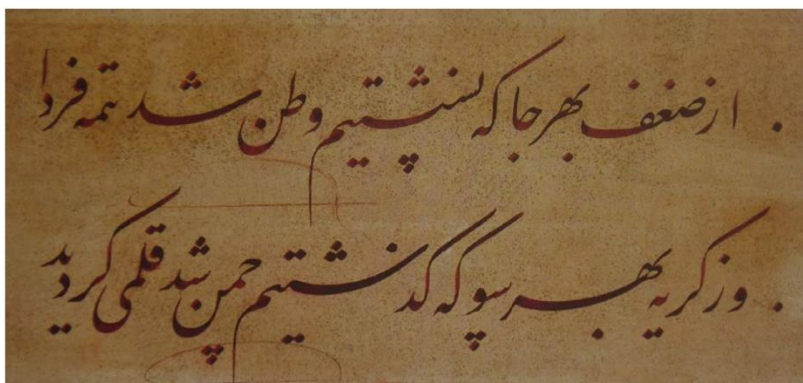 از ضعف بهر جا که نشستیم وطن شد تتمه فردا
وز گریه بهر سو که گذشتیم چمن شد قلمی گردید